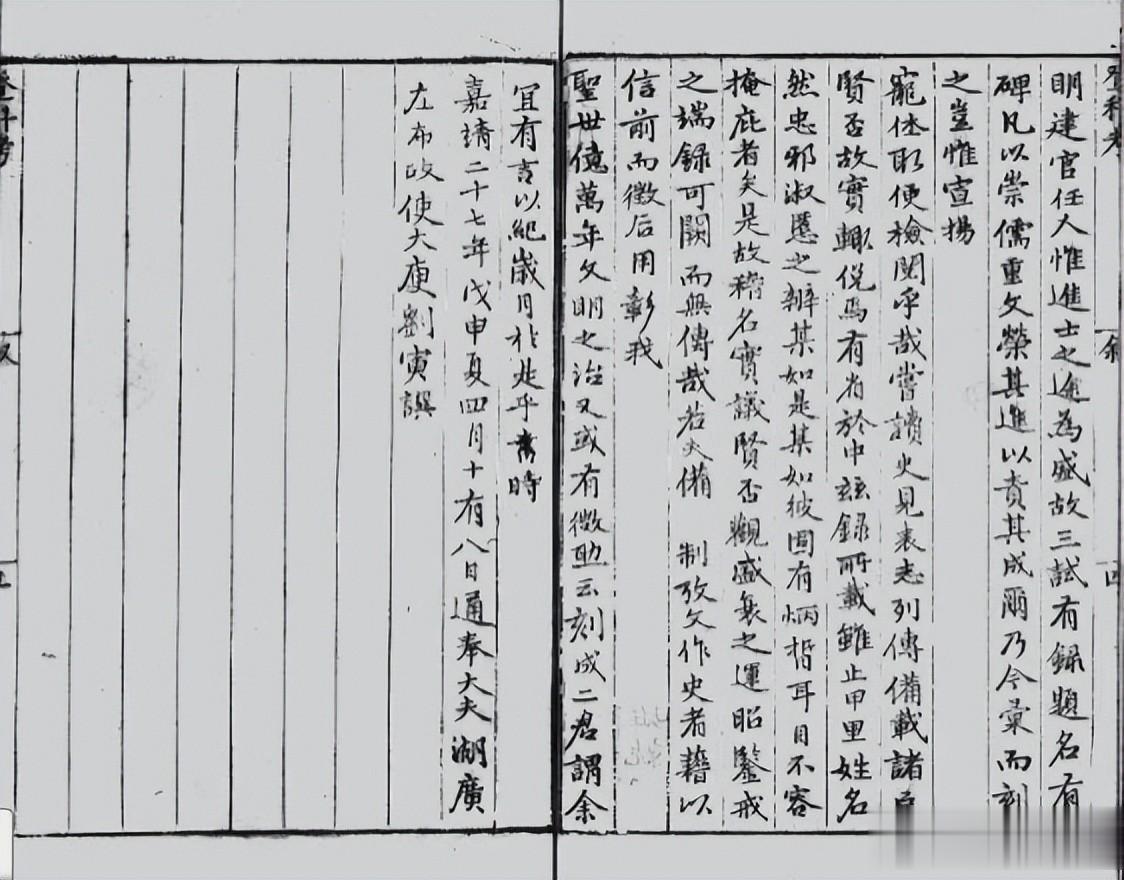 登科考
叙
四
明建官任人惟進士之途為盛故三試有録題名有
碑凡以崇儒重文榮其進以責其成爾乃今彙而刻
之豈惟宣揚
寵休取便檢閱乎哉嘗讀史見表志列傳備載諸臣
賢否故實輙恱焉有省於中玆録所載雖止甲里姓名
然忠邪淑慝之辨某如是某如彼固有炳揩耳目不容
掩庇者矣是故稽名實議賢否觀盛衰之運昭鑒戒
之端録可闕而無傳哉若夫備 制攷文作史者藉以
信前而徵后用彰我
聖世億萬年文明之治又或有徴焉云刻成二君謂余
宜有言以紀歲月於是乎書時
嘉靖二十七年戊申夏四月十有八日通奉大夫湖廣
左布政使大庾劉寅譔
登科考
五